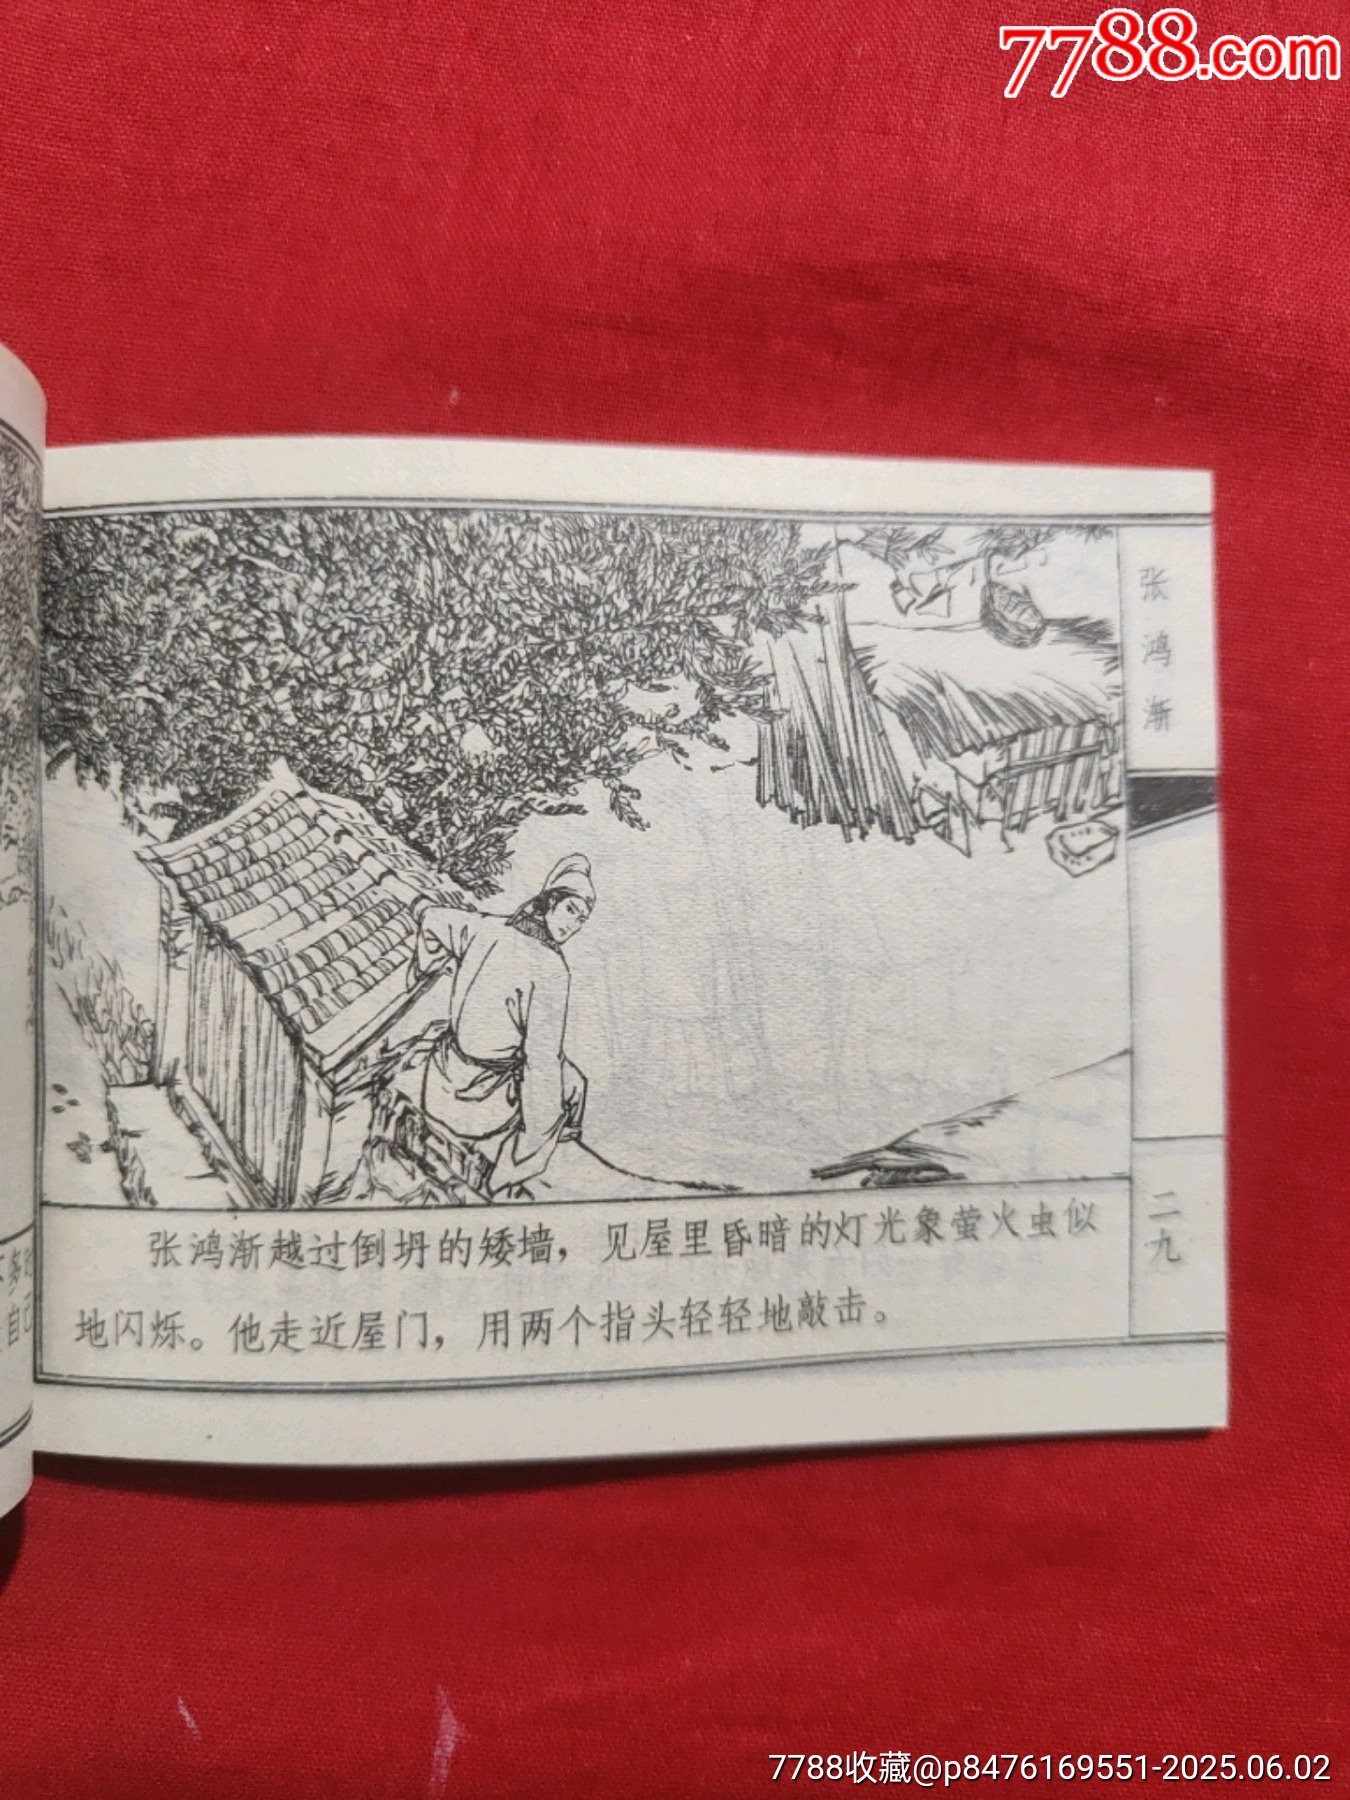 7788.com
张鸿渐
张鸿渐越过倒坍的矮墙，见屋里昏暗的灯光象萤火虫似
地闪烁。他走近屋门，用两个指头轻轻地敲击。
二九
多
自己
7788收藏@p8476169551-2025.06.02